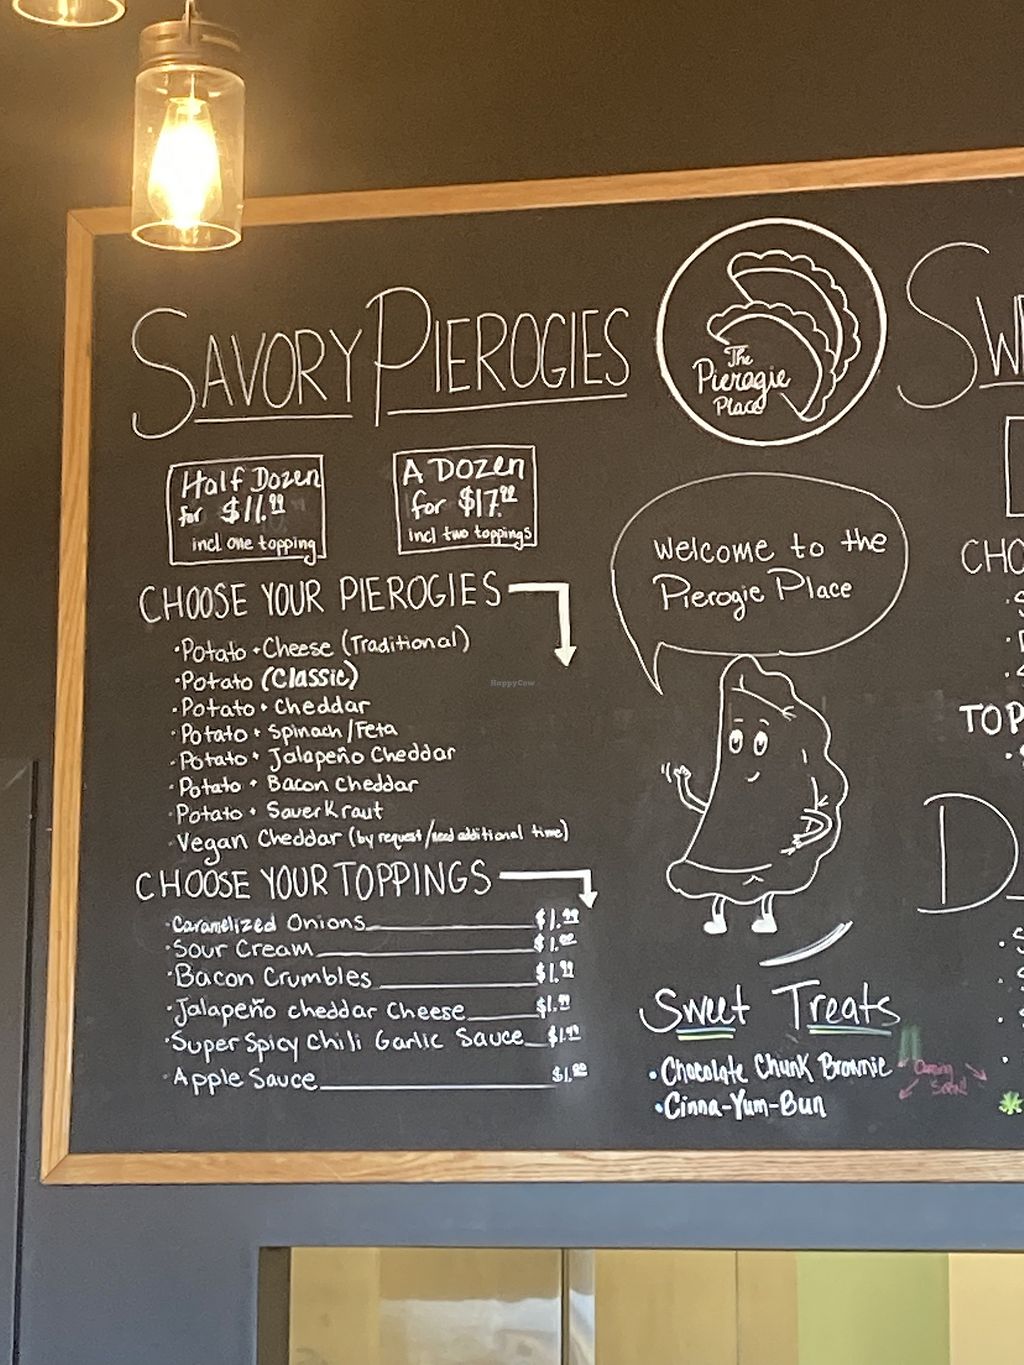 SAVORY PIEROGIES
The
Pierogie
Place
Half Dozen
for $11.99
incl one topping
A DOZEN
for $17.99
Incl two toppings
Welcome to the
Pierogie Place
CHOOSE YOUR PIEROGIES
·Potato + Cheese (Traditional)
·Potato (Classic)
·Potato + Cheddar
·Potato + Spinach/Feta
·Potato + Jalapeño Cheddar
·Potato + Bacon Cheddar
·Potato + SauerKraut
·Vegan Cheddar (by request/need additional time)
CHOOSE YOUR TOPPINGS
·Caramelized Onions $1.99
·Sour Cream $1.00
·Bacon Crumbles $1.99
·Jalapeño cheddar Cheese $1.99
·Super Spicy Chili Garlic Sauce $1.99
·Apple Sauce $1.00
Sweet Treats
•Chocolate Chunk Brownie
Coming
Soon!
•Cinna-Yum-Bun
SW
CHO
TOP
D
HappyCow